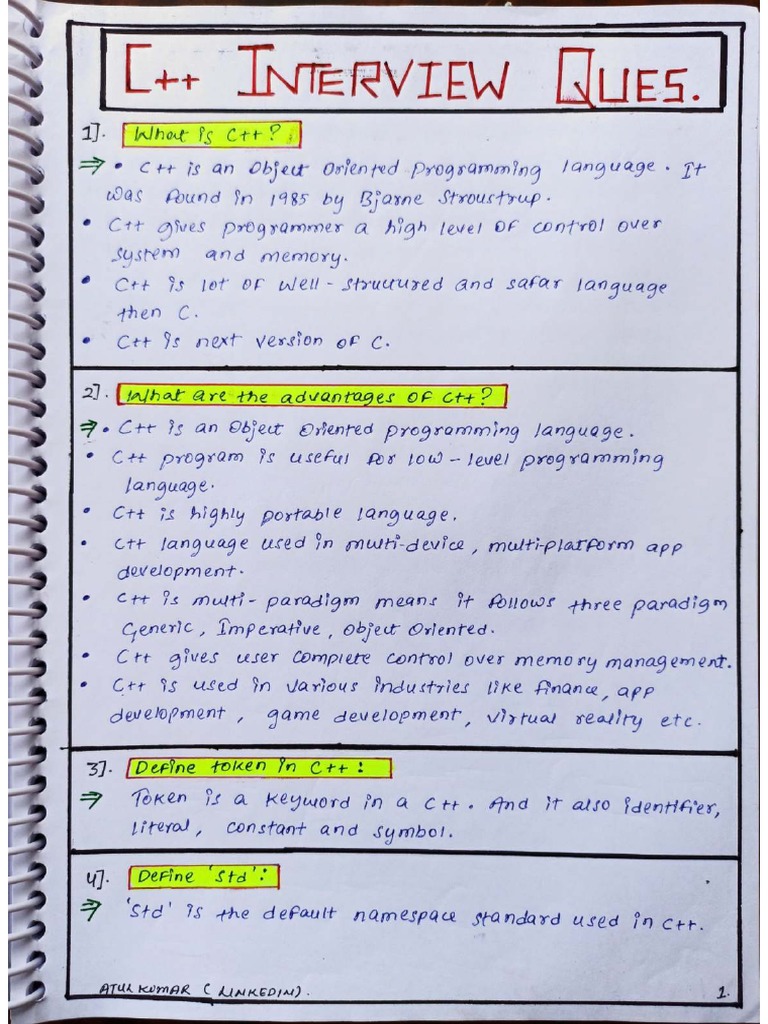 C++ INTERVIEW QUES.
1]. What is C++?
⇒ • C++ is an Object Oriented Programming language. It
was found in 1985 by Bjarne Stroustrup.
• C++ gives programmer a high level of control over
system and memory.
• C++ is lot of well-structured and safar language
then C.
• C++ is next version of C.
2]. What are the advantages of C++?
⇒ • C++ is an Object Oriented programming language.
• C++ program is useful for low-level programming
language.
• C++ is highly portable language.
• C++ language used in multi-device, multi-platform app
development.
• C++ is multi-paradigm means it follows three paradigm
Generic, Imperative, Object Oriented.
• C++ gives user complete control over memory management.
• C++ is used in various industries like finance, app
development, game development, virtual reality etc.
3]. Define token in C++:
⇒ Token is a keyword in a C++. And it also identifier,
literal, constant and symbol.
4]. Define 'Std':
⇒ 'Std' is the default namespace standard used in C++.
ATUL KUMAR (LINKEDIN). 1.